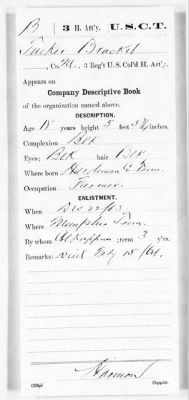 B 3 H. Art'y. U.S.C.T.
Tucker Bracket
, Co. M., 3 Reg't U.S. Col'd H. Art'y.
Appears on
Company Descriptive Book
of the organization named above.
DESCRIPTION.
Age 18 years; height 5 feet 3 inches.
Complexion Blk
Eyes; Blk hair Blk
Where born Hardeman Co Tenn.
Occupation Farmer
ENLISTMENT.
When Dec 22/63.
Where Memphis Tenn.
By whom ; term 3 y'rs.
Remarks: Died Feb 15/64.
Copyist.